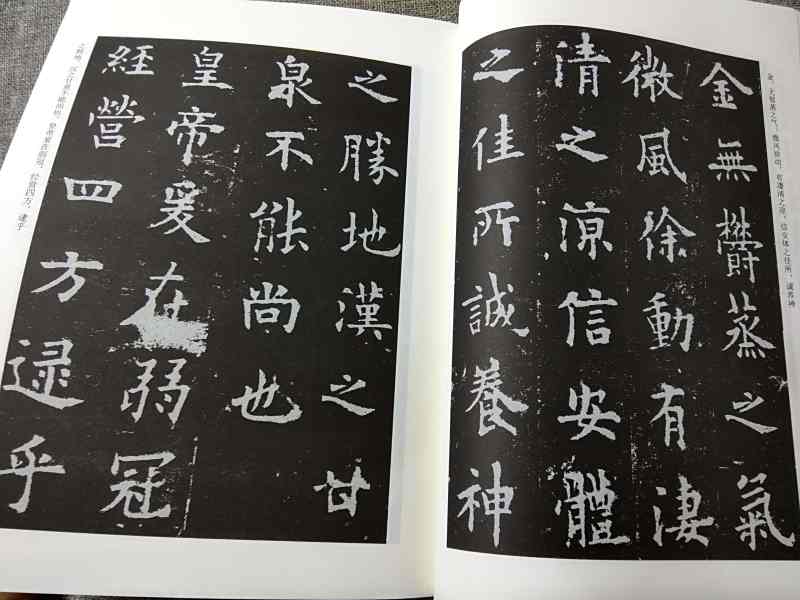 金無欝蒸之氣
微風徐動有淒
清之涼信安體
之佳所誠養神
之勝地漢之甘
泉不能尚也
皇帝爰在弱冠
經營四方逮乎
金，无郁蒸之气；微风徐动，有凄清之凉。信安体之佳所，诚养神
之胜地，汉之甘泉不能尚也。皇帝爰在弱冠，经营四方，逮乎